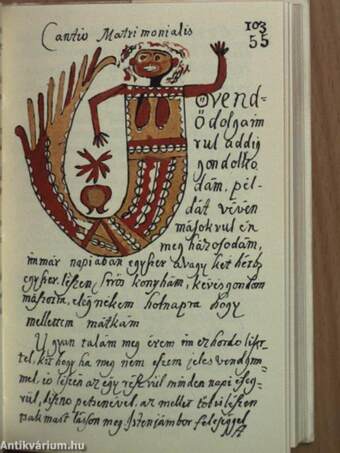 Cantio Matrimonialis
103
55
Övend-
ő dolgaim
rul addig
gondolko
dám, pél-
dát vévén
másokrul én
meg házosodám,
immár napjaban egyszer avagy két hétb
egyszer, lészen Sirós konyhám, kévés gondom
másszorra, elég nekem holnapra hogy
mellettem mátkám
Ugyan talám meg érem im ez hordo
tel, két hogy ha meg nem eszem jeles vendégim
mel, is lészen az egy rész rül minden napi
rül, diszno petsenével, az mellet tobis lészen
tsak mast lásson meg Isten jámbor feleséggel
Antikvárium.hu